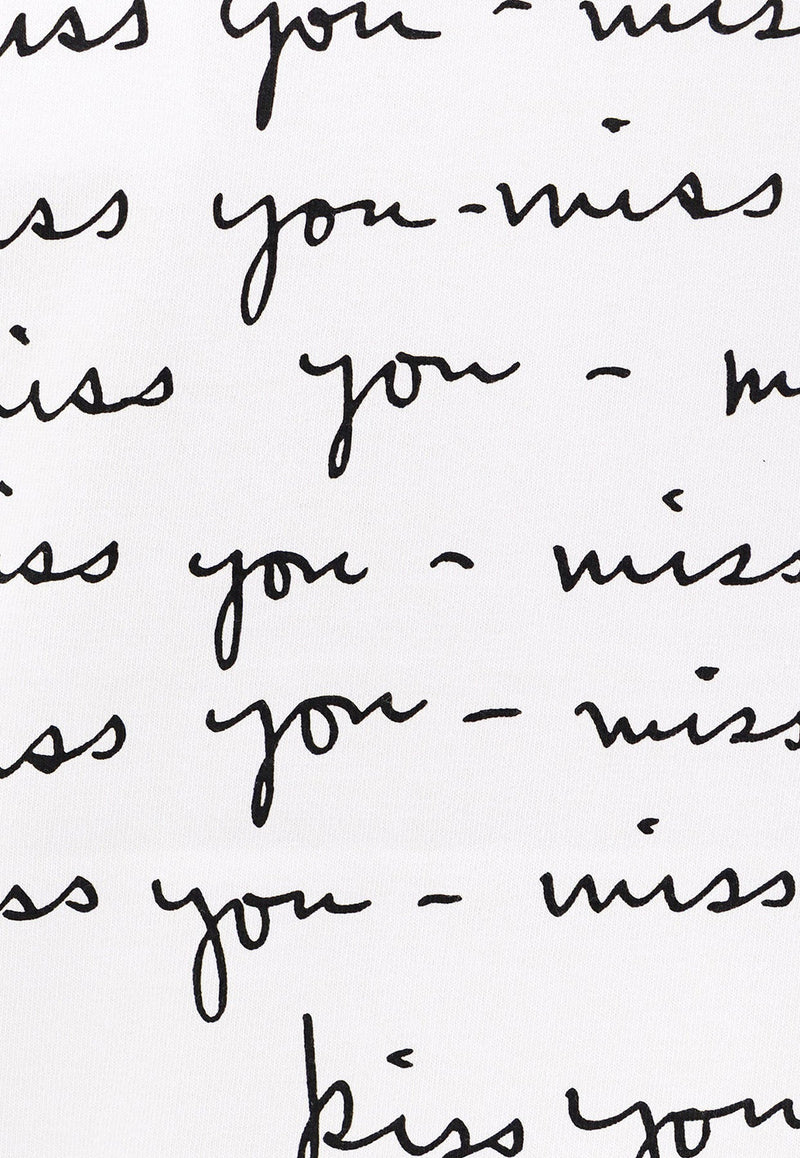 iss you - miss
iss you - miss
miss you - m
iss you - miss
iss you - miss
ss you - miss
kiss you